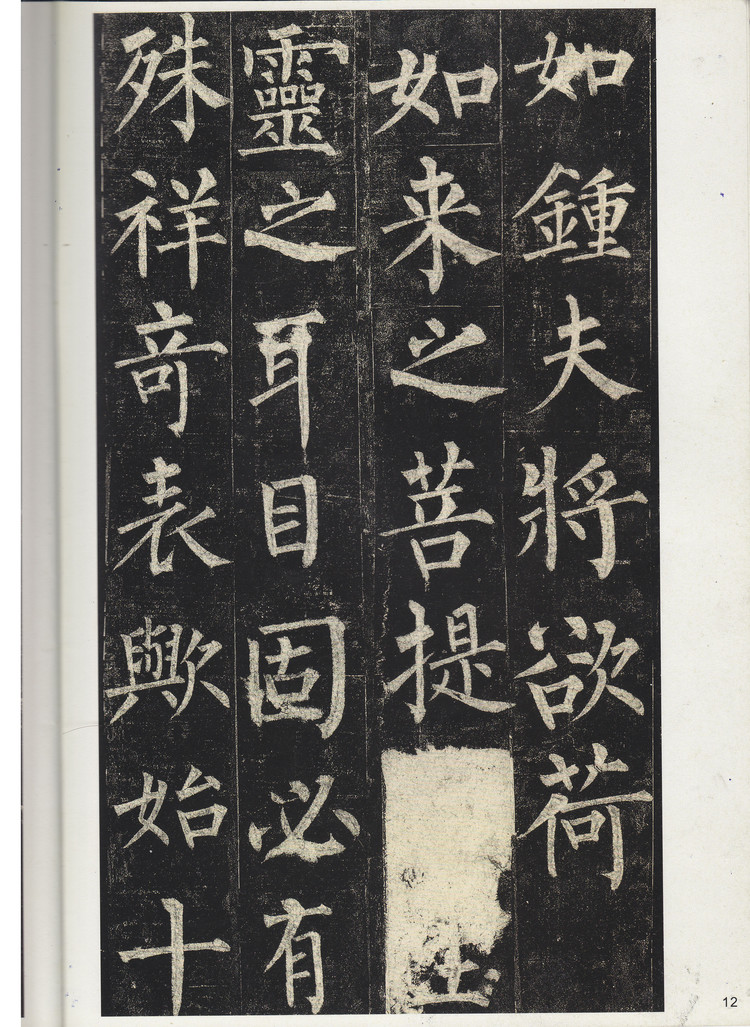 如鍾夫將欲荷
如来之菩提
靈之耳目固必有
殊祥竒表歟始十
12